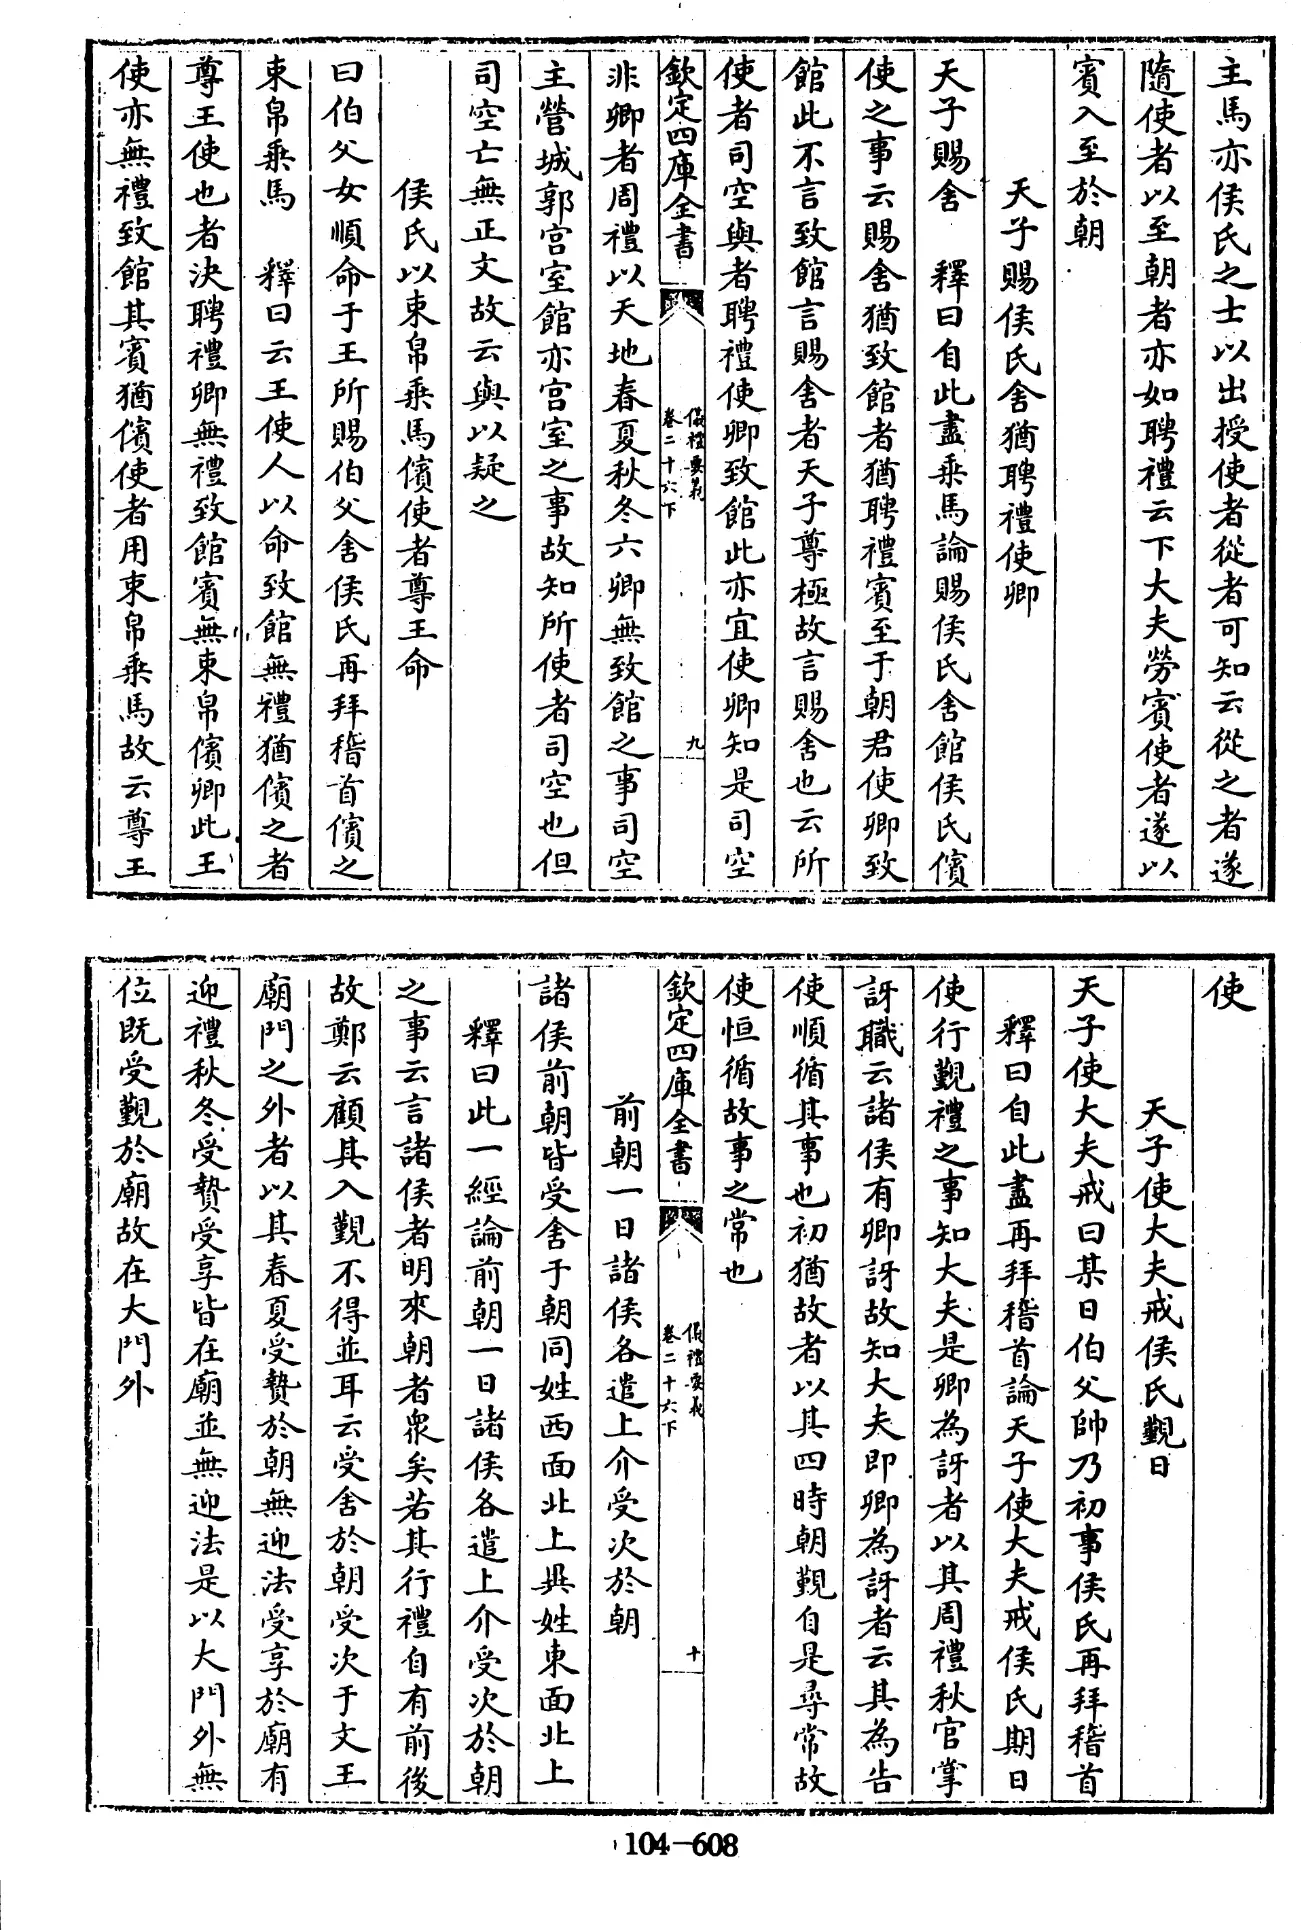 主馬亦侯氏之士以出授使者從者可知云從之者遂
隨使者以至朝者亦如聘禮云下大夫勞賓使者遂以
賓入至於朝
天子賜侯氏舍猶聘禮使卿
天子賜舍　釋曰自此盡乘馬論賜侯氏舍館侯氏儐
使之事云賜舍猶致館者猶聘禮賓至于朝君使卿致
館此不言致館言賜舍者天子尊極故言賜舍也云所
使者司空與者聘禮使卿致館此亦宜使卿知是司空
欽定四庫全書
儀禮要義
卷二十六下
九
非卿者周禮以天地春夏秋冬六卿無致館之事司空
主營城郭宮室館亦宮室之事故知所使者司空也但
司空亡無正文故云與以疑之
侯氏以束帛乘馬儐使者尊王命
曰伯父女順命于王所賜伯父舍侯氏再拜稽首儐之
束帛乘馬　釋曰云王使人以命致館無禮猶儐之者
尊王使也者決聘禮卿無禮致館賓無束帛儐卿此王
使亦無禮致館其賓猶儐使者用束帛乘馬故云尊王
使
天子使大夫戒侯氏覲日
天子使大夫戒曰某日伯父帥乃初事侯氏再拜稽首
釋曰自此盡再拜稽首論天子使大夫戒侯氏期日
使行覲禮之事知大夫是卿為訝者以其周禮秋官掌
訝職云諸侯有卿訝故知大夫即卿為訝者云其為告
使順循其事也初猶故者以其四時朝覲自是尋常故
使恒循故事之常也
欽定四庫全書
儀禮要義
卷二十六下
十
前朝一日諸侯各遣上介受次於朝
諸侯前朝皆受舍于朝同姓西面北上異姓東面北上
釋曰此一經論前朝一日諸侯各遣上介受次於朝
之事云言諸侯者明來朝者衆矣若其行禮自有前後
故鄭云顧其入覲不得並耳云受舍於朝受次于文王
廟門之外者以其春夏受贄於朝無迎法受享於廟有
迎禮秋冬受贄受享皆在廟並無迎法是以大門外無
位既受覲於廟故在大門外
104-608